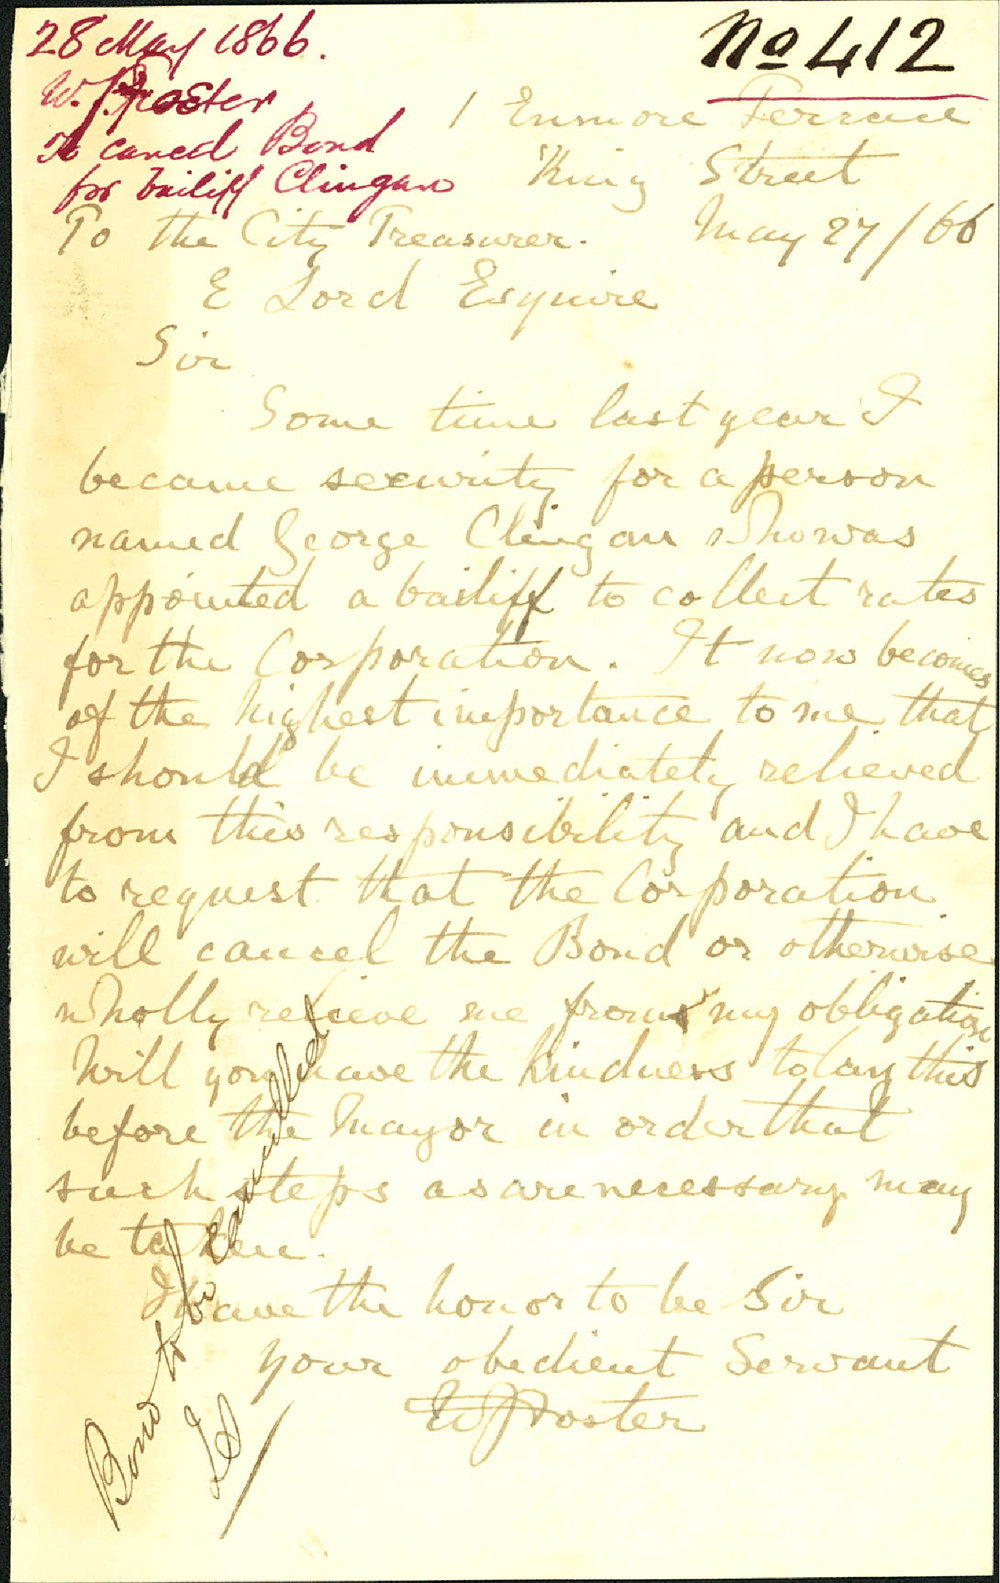 28 May 1866.
W. J. Foster
To cancel Bond
for bailiff Clingan
No 412
1 Enmore Terrace
King Street
May 27/66
To the City Treasurer.
E Lord Esquire
Sir
Some time last year I
became security for a person
named George Clingan who was
appointed a bailiff to collect rates
for the Corporation. It now becomes
of the highest importance to me that
I should be immediately relieved
from this responsibility and I have
to request that the Corporation
will cancel the Bond or otherwise
wholly relieve me from my obligation
Will you have the kindness to lay this
before the Mayor in order that
such steps as are necessary may
be taken.
I have the honor to be Sir
your obedient Servant
W J Foster
Bond to be cancelled